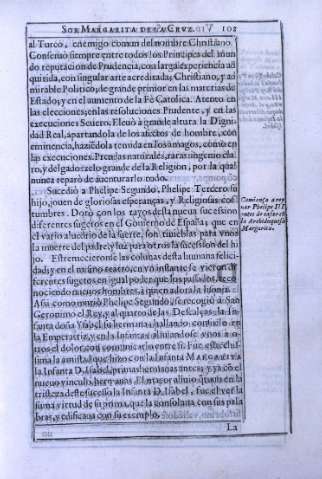 SOR MARGARITA DE LA CRVZ. 102
al Turco, enemigo comun del nombre Christiano
Conseruò siempre entre todos los Principes del mun
do reputacion de Prudencia, con larga experiencia ad
quirida, con singular arte acreditada; Christiano, y ad
mirable Politico; de grande primor en las materias de
Estado; y en el aumento de la Fè Catolica. Atento en
las elecciones, en las resoluciones Prudente, y en las
execuciones Seuero. Eleuò a grande altura la Digni-
dad Real, apartandola de los afectos de hombre, con
eminencia, haziendola temida en los amagos, como en
las execuciones. Prendas naturales, raras; ingenio cla-
ro, y delgado: zelo grande de la Religion, por la qual
nunca reparò de auenturarlo todo.
Sucediò a Phelipe Segundo, Phelipe Tercero su
hijo, jouen de gloriosas esperanças, y Religiosas cos-
tumbres. Dorò con los rayos desta nueua sucession
diferentes sugetos en el Gouierno de España; que en
el vario azueclo de la suerte, son tinieblas para vnos
la muerte del padre, y luz para otros la sucession del hi
jo. Estremecieronse las colunas desta humana felici-
dad; y en el mismo teatro, en vo instante se vieron di-
ferentes sugetos en igual poder que los passados, reco
nociendo a vnos hombres, a quien adorala lisonja.
Assi como muriò Phelipe Segundo, se recogiò a San
Geronimo el Rey, y al quarto de las Descalças, la In-
fanta doña Ysabel su hermana; hallando consuelo en
la Emperatriz, y en las Infantas aliuiandose vnos a o-
tros el dolor, con comunicarlo entre si. Fue estrechis
sima la amistad que hizo con la Infanta MARGARITA
la Infanta D. Isabel, primas hermanas antes; y ya cõ el
nueuo vinculo, hermanas. El mayor aliuio que en la
tristeza deste sucesso la Infanta D. Isabel, fue el ver la
suma virtud de su prima, que la consolaua con sus pala
bras, y edificaua con su exemplo.
La
Comiença a rey
nar Phelipe III.
Margarita.